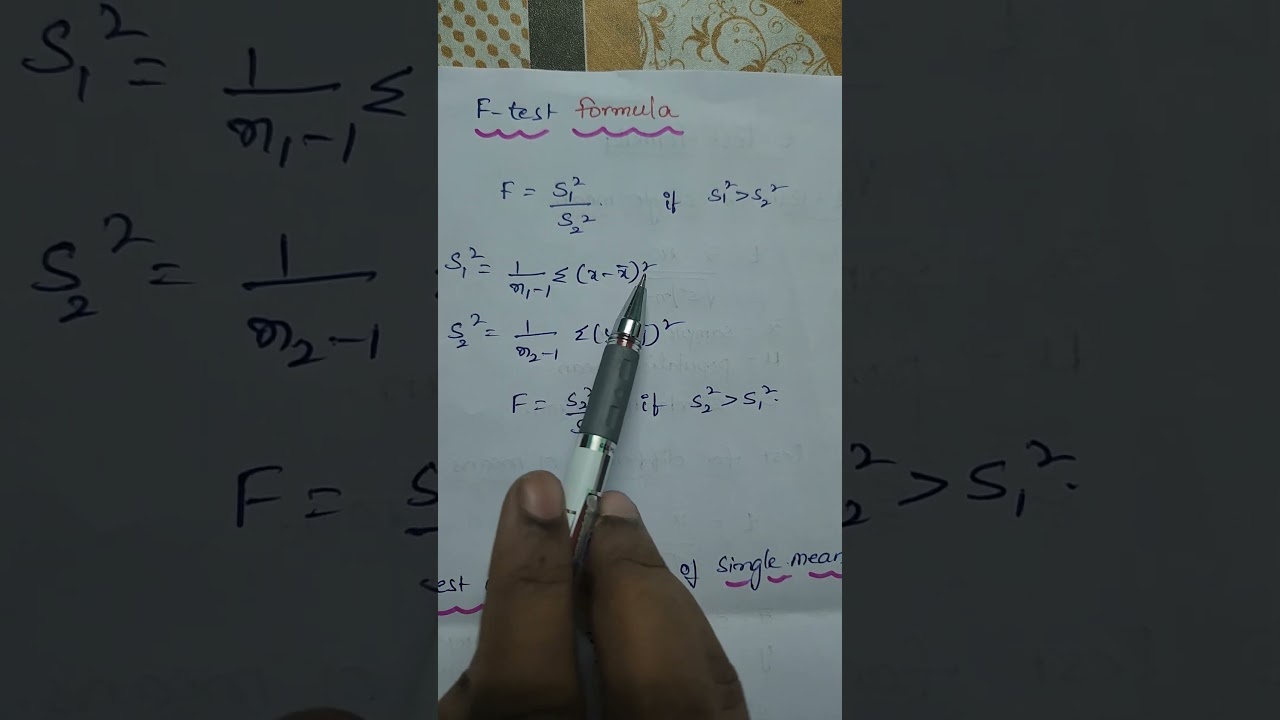 F-test formula
F = S₁²/S₂². if S₁² > S₂²
S₁² = 1/(n₁-1) Σ (x - x̄)²
S₂² = 1/(n₂-1) Σ( )²
F = S₂² if S₂² > S₁².
of single mean